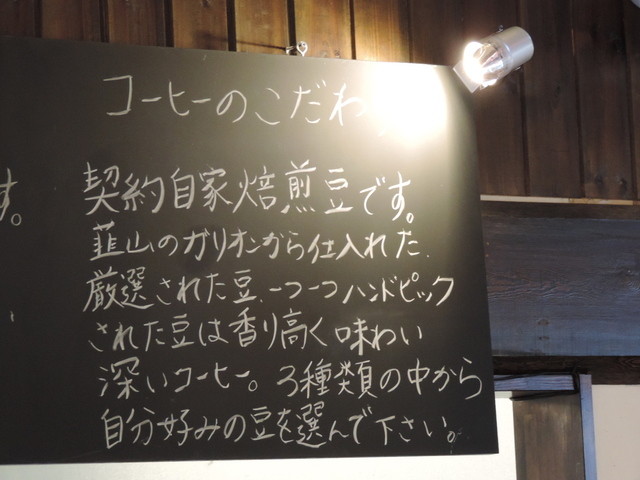 コーヒーのこだわ
す。
契約自家焙煎豆です。
韮山のガリオンから仕入れた、
厳選された豆、一つ一つハンドピック
された豆は香り高く味わい
深いコーヒー。3種類の中から
自分好みの豆を選んで下さい。